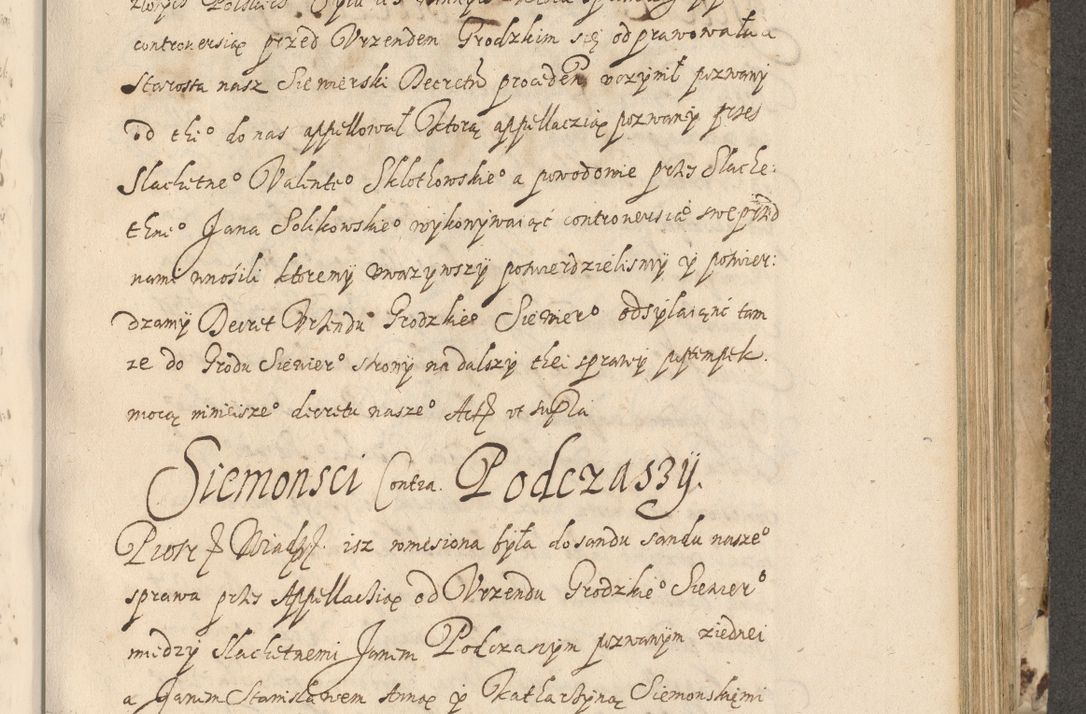 złotych Polskich
controuersiąę przed Vrzendem Grodzkim się odprawowała a
Starosta nasz Siewierski Decretu proceden uczynił pozwany
od the° do nas appellował Ktorą appellacziąę pozwany przes
Slachetne° Valente° Sklotkowskie° a powodowie przes Slache:
thne° Jana Solikowskie° wykonywaiąć controuersiae swe przed
nami wnosili ktoremy vwazywszy potwierdzielismy y potwier:
dzamy Decret Vrzendu Grodzkie° Siewier° odsylaiąnć tam
ze do Grodu Siewier° strony na dalszy thei sprawy postempek.
mocą ninieisze° decretu nasze° Act ut supra
Siemonsci Contra. Podczaszy.
Piotr isz wniesiona była do sandu sandu nasze°
sprawa przes Appellacsiąę od Vrzendu Grodzkie° Siewier°
miedzy Slachetnemi Janem Podczaszym pozwanym ziednei
a Janem Stanisławem Anną y Katharzyną Siemonskiemi